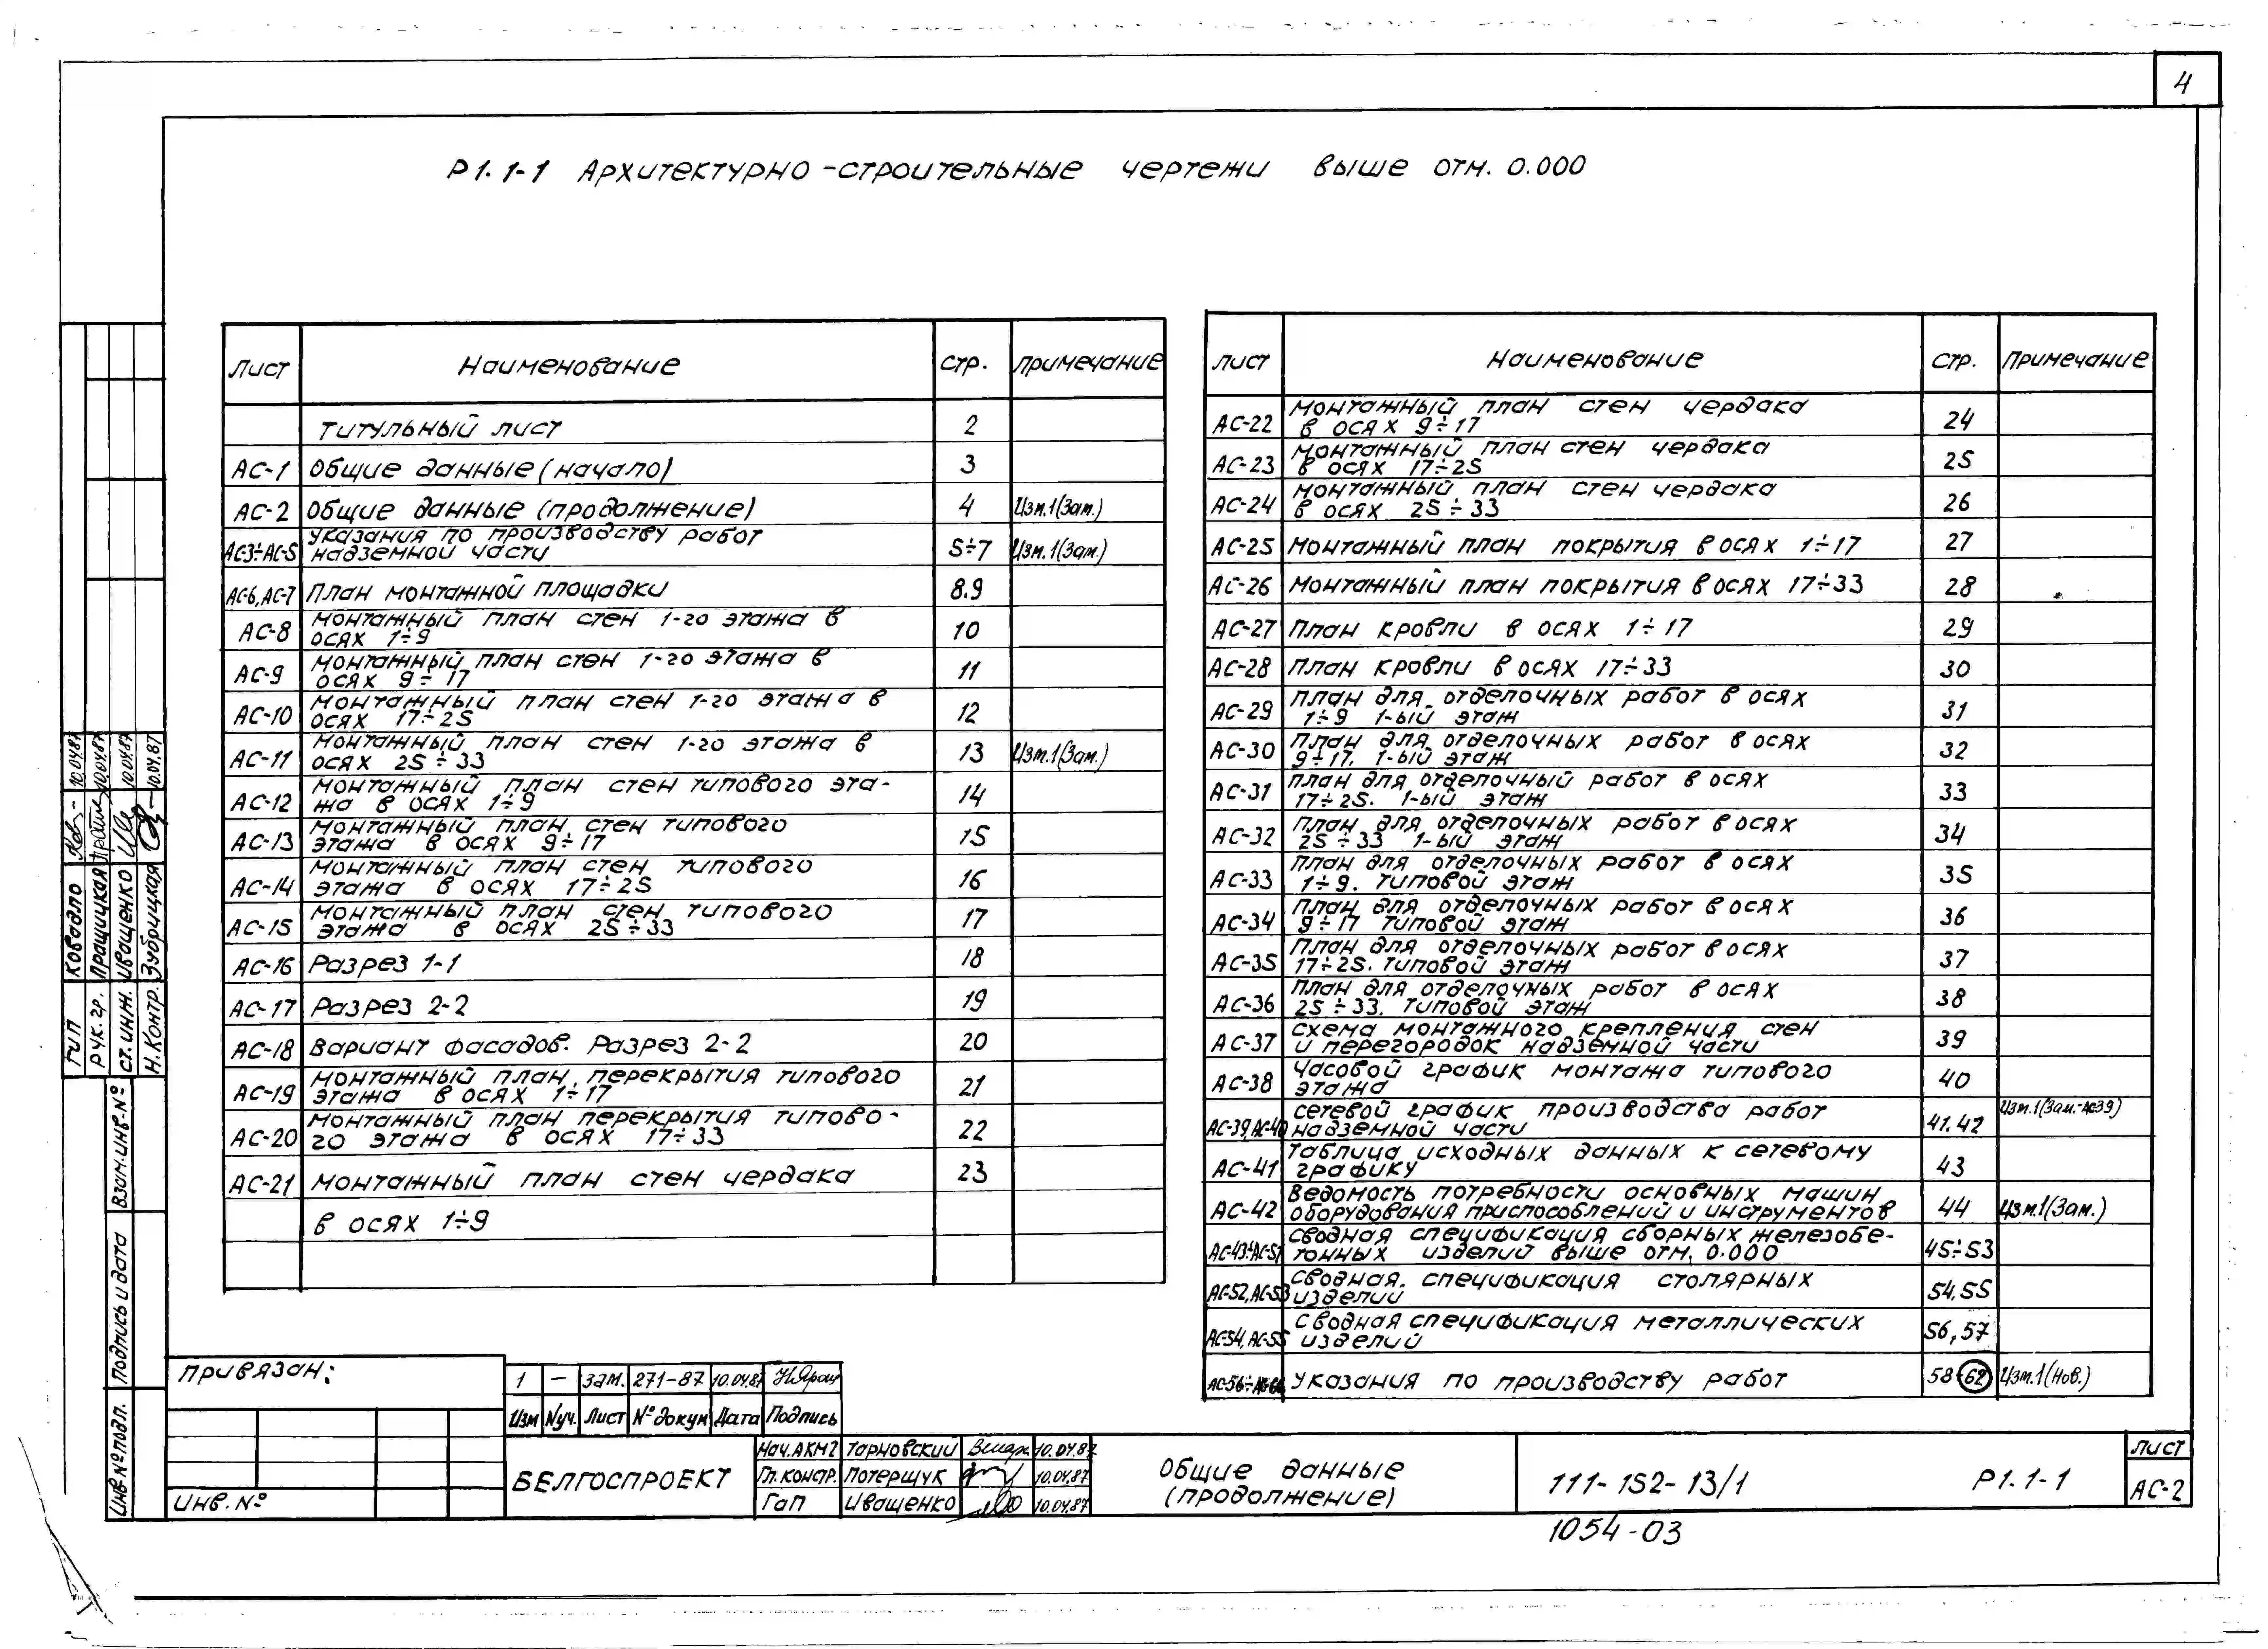 4
Р1.1-1 Архитектурно-строительные чертежи выше отм. 0.000
Лист Наименование Стр. Примечание
Титульный лист 2
АС-1 Общие данные (начало) 3
АС-2 Общие данные (продолжение) 4 Изм.1(Зам.)
АС-3÷АС-5 Указания по производству работ
надземной части 5÷7 Изм.1(Зам.)
АС-6, АС-7 План монтажной площадки 8.9
АС-8 Монтажный план стен 1-го этажа в
осях 1÷9 10
АС-9 Монтажный план стен 1-го этажа в
осях 9÷17 11
АС-10 Монтажный план стен 1-го этажа в
осях 17÷25 12
АС-11 Монтажный план стен 1-го этажа в
осях 25÷33 13 Изм.1(Зам.)
АС-12 Монтажный план стен типового эта-
жа в осях 1÷9 14
АС-13 Монтажный план стен типового
этажа в осях 9÷17 15
АС-14 Монтажный план стен типового
этажа в осях 17÷25 16
АС-15 Монтажный план стен типового
этажа в осях 25÷33 17
АС-16 Разрез 1-1 18
АС-17 Разрез 2-2 19
АС-18 Вариант фасадов. Разрез 2-2 20
АС-19 Монтажный план перекрытия типового
этажа в осях 1÷17 21
АС-20 Монтажный план перекрытия типово-
го этажа в осях 17÷33 22
АС-21 Монтажный план стен чердака 23
в осях 1÷9
Лист Наименование Стр. Примечание
АС-22 Монтажный план стен чердака
в осях 9÷17 24
АС-23 Монтажный план стен чердака
в осях 17÷25 25
АС-24 Монтажный план стен чердака
в осях 25÷33 26
АС-25 Монтажный план покрытия в осях 1÷17 27
АС-26 Монтажный план покрытия в осях 17÷33 28
АС-27 План кровли в осях 1÷17 29
АС-28 План кровли в осях 17÷33 30
АС-29 План для отделочных работ в осях
1÷9 1-ый этаж 31
АС-30 План для отделочных работ в осях
9÷17. 1-ый этаж 32
АС-31 План для отделочный работ в осях
17÷25. 1-ый этаж 33
АС-32 План для отделочных работ в осях
25÷33 1-ый этаж 34
АС-33 План для отделочных работ в осях
1÷9. Типовой этаж 35
АС-34 План для отделочных работ в осях
9÷17 Типовой этаж 36
АС-35 План для отделочных работ в осях
17÷25. Типовой этаж 37
АС-36 План для отделочных работ в осях
25÷33. Типовой этаж 38
АС-37 Схема монтажного крепления стен
и перегородок надземной части 39
АС-38 Часовой график монтажа типового
этажа 40
АС-39, АС-40 Сетевой график производства работ
надземной части 41.42 Изм.1(Зам.-АС39)
АС-41 Таблица исходных данных к сетевому
графику 43
АС-42 Ведомость потребности основных машин
оборудования приспособлений и инструментов 44 Изм.1(Зам.)
АС-43÷АС-51 Сводная спецификация сборных железобе-
тонных изделий выше отм. 0.000 45÷53
АС-52, АС-53 Сводная спецификация столярных
изделий 54.55
АС-54, АС-55 Сводная спецификация металлических
изделий 56,57
АС-56÷ Указания по производству работ 58-62 Изм.1(Нов.)
Привязан:
Инв.№
1 — Зам. 271-87 10.04.87
Изм №уч. Лист №докум Дата Подпись
БЕЛГОСПРОЕКТ
Нач.АКМ2 Тарновский 10.04.87
Гл.констр. Потерщук 10.04.87
Гап Иващенко 10.04.87
Общие данные
(продолжение)
111-152-13/1 Р1.1-1
Лист
АС-2
1054-03
ГИП Ковадло 10.04.87
Рук.гр. Пращицкая 10.04.87
Ст.инж. Иващенко 10.04.87
Н.Контр. Зубрицкая 10.04.87
Взам.инв.№
Подпись и дата
Инв№подл.